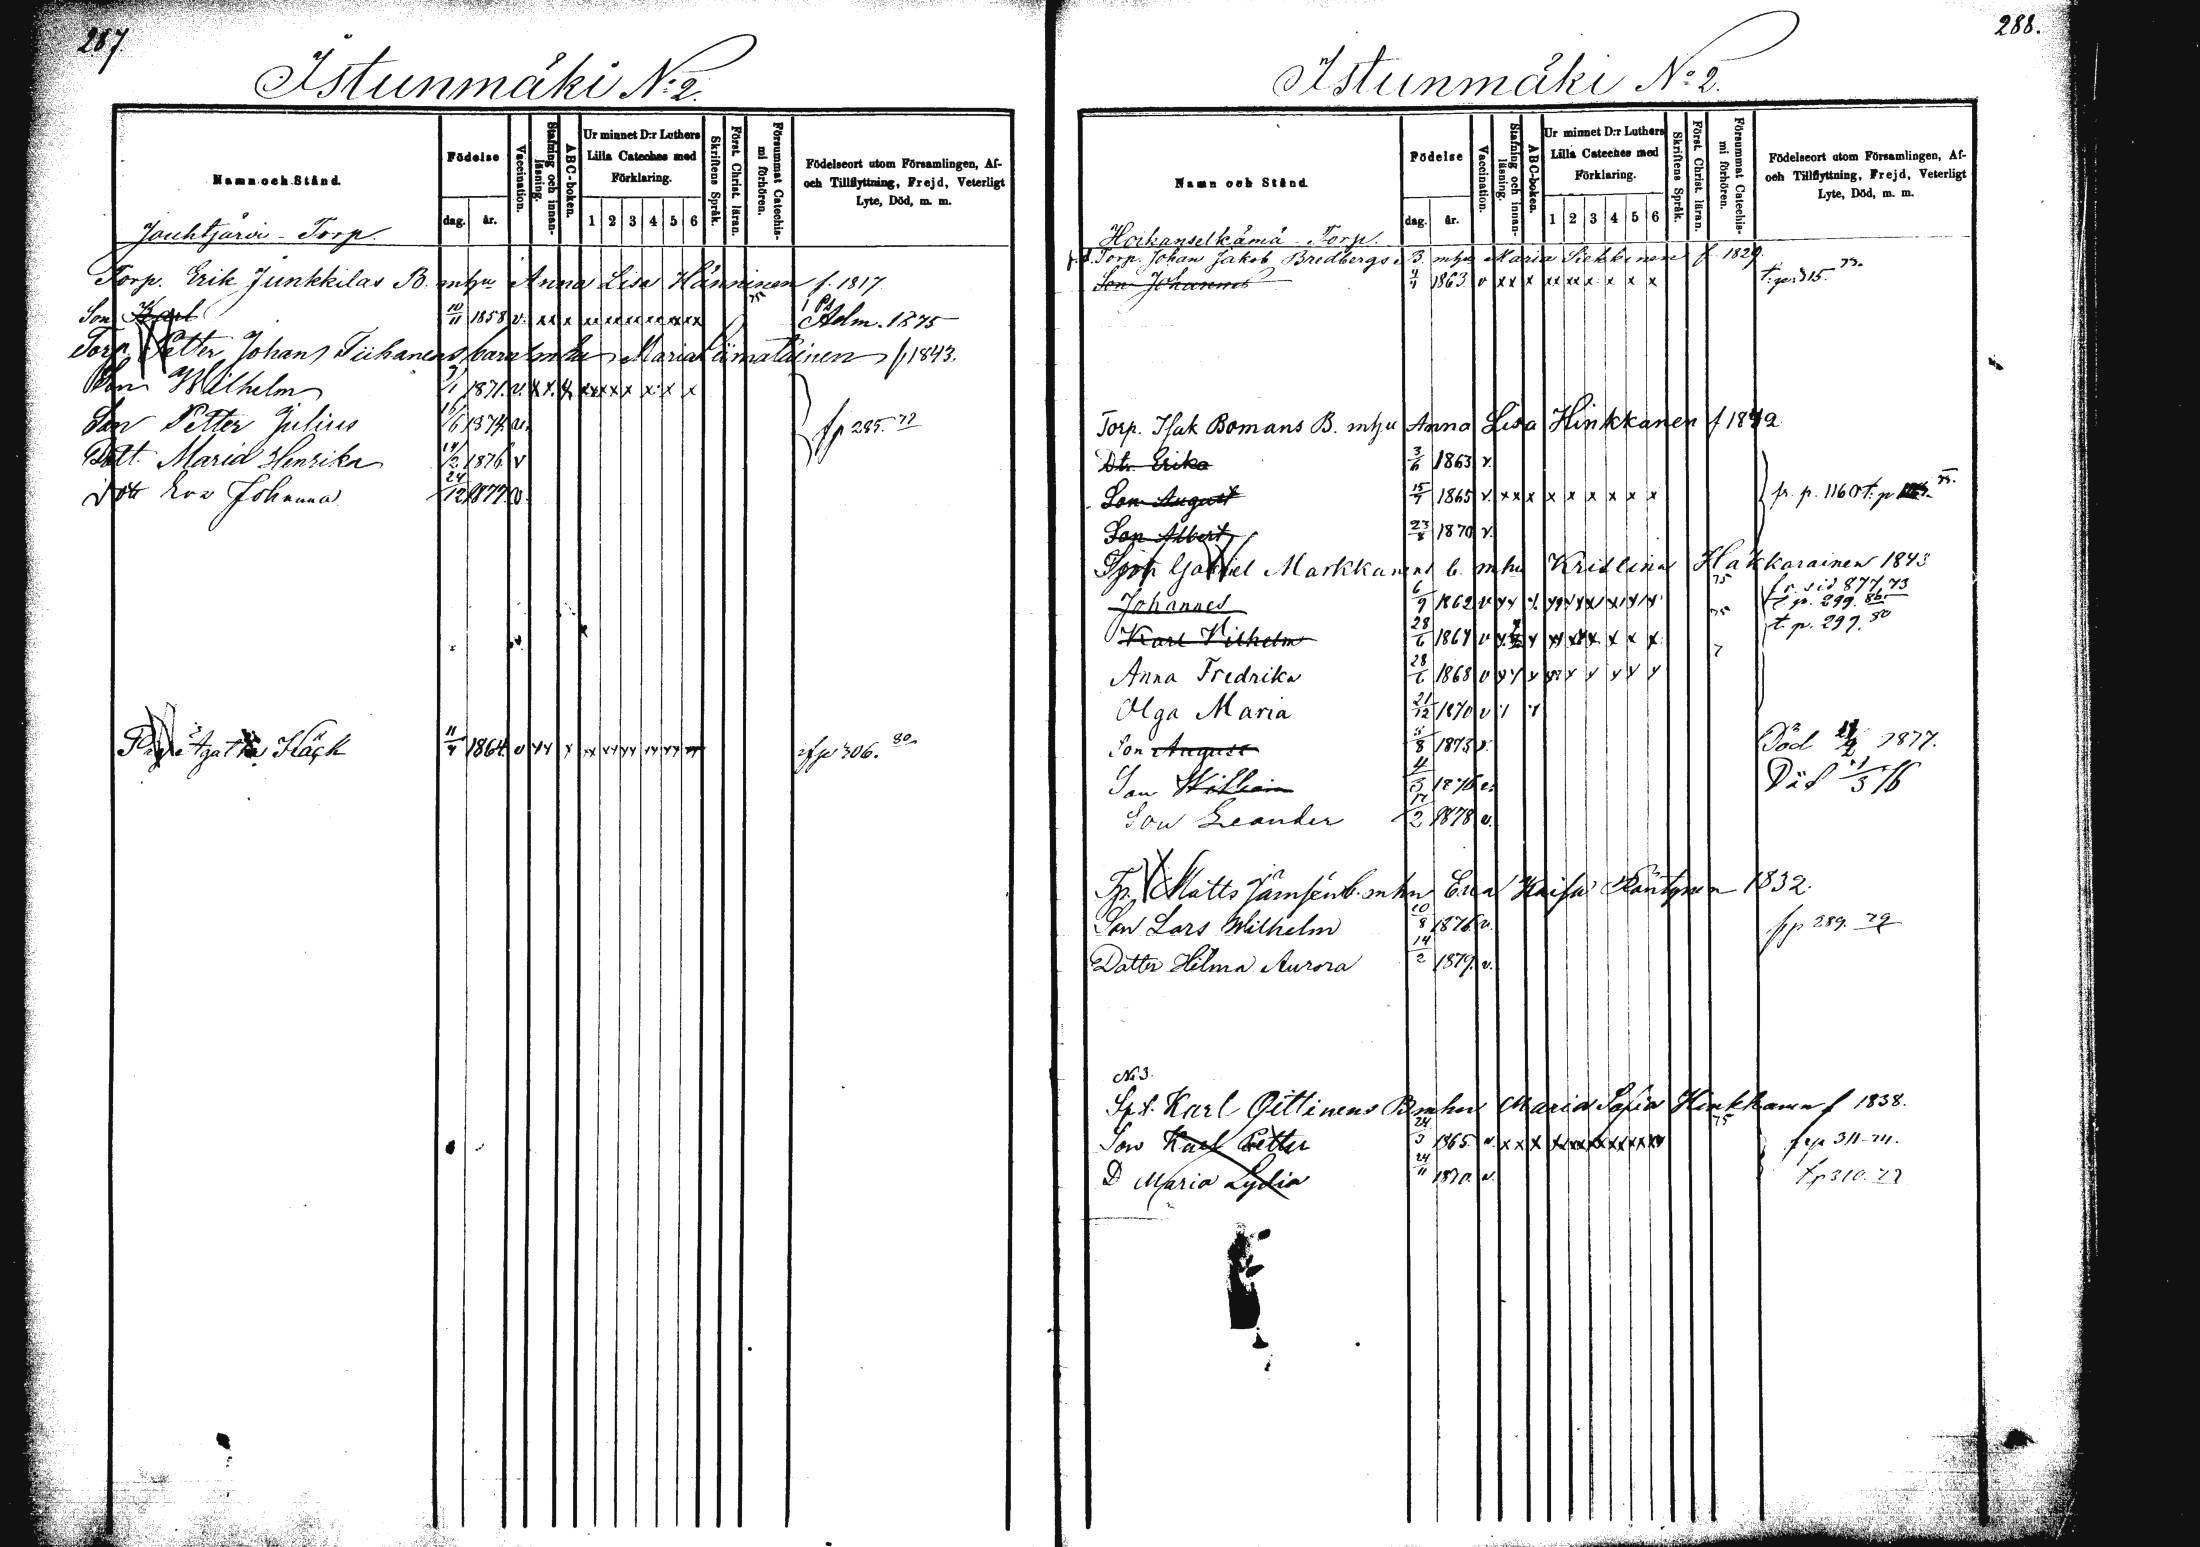 287.
Istunmäki No 2.
Namn och Stånd.
Födelse
dag.
år.
Vaccination.
Stafning och innan-läsning.
ABC-boken.
Ur minnet D:r Luthers Lilla Cateches med Förklaring.
1 2 3 4 5 6
Skriftens Språk.
Först. Christ. läran.
Försummat Catechis-mi förhören.
Födelseort utom Församlingen, Af- och Tillflyttning, Frejd, Veterligt Lyte, Död, m. m.
Jouhtjärvi - Torp.
Torp. Erik Junkkilas B. mhu Anna Lisa Hänninen f. 1817
Son Karl 10/11 1858 v. xx x xx xx xx xx xx xx 75 Adm. 1875
Torp. Petter Johan Tiihanens barn mhu Maria f 1843.
Son Wilhelm 1871. v. x x. x xx xx x x x x
Son Petter Julius 16/6 1874 v. fp 285. 72
Dott. Maria Henrika 14/2 1876 v
Dott Eva Johanna 24/12 1877. v.
Agatha Häck 11/7 1864 v xx x xx xx xx xx xx xx p 306. 80
288.
Istunmäki No 2.
Namn och Stånd.
Födelse
dag.
år.
Vaccination.
Stafning och innan-läsning.
ABC-boken.
Ur minnet D:r Luthers Lilla Cateches med Förklaring.
1 2 3 4 5 6
Skriftens Språk.
Först. Christ. läran.
Försummat Catechis-mi förhören.
Födelseort utom Församlingen, Af- och Tillflyttning, Frejd, Veterligt Lyte, Död, m. m.
Hoikanselkämä Torp.
f.d. Torp. Johan Jakob Bredbergs B. mhu Maria Siekkinen f 1829.
Son Johannes 1863 v xx x xx xx x x x x t. p. 315. 73.
Torp. Isak Bomans B. mhu Anna Lisa Hinkkanen f 1842
Dtr Erika 3/6 1863 v.
Son August 15/7 1865 v. xx x x x x x x x fr. p. 1160 t. p
Son Albert 23/8 1870 v.
Torp Gabriel Markkanens b. mhu Kristina Hakkarainen 1843
Johannes 6/9 1862 v 75 fr. sid 877. 73 t. p. 299. 86.
Karl Vilhelm 28/6 1864 v 75 t. p. 297. 80
Anna Fredrika 28/6 1868 v
Olga Maria 21/12 1870 v
Son August 5/8 1873 v. Död 1877.
Son William 4/3 1876 v. Död /3 76
Son Leander 17/2 1878 v.
Tp. Matts Jämsén b. mhu Eva Kaisa Käntynen 1832.
Son Lars Wilhelm 10/8 1876 v. fp 289. 79
Datter Hilma Aurora 14/2 1879. v.
No 3.
Spt. Karl Oittinens B mhu Maria Sofia Hinkkanen f 1838.
Son Karl Petter 24/3 1865. v. xx x 75 p 311-74.
D Maria Lydia 24/11 1870. v. t p 310. 77